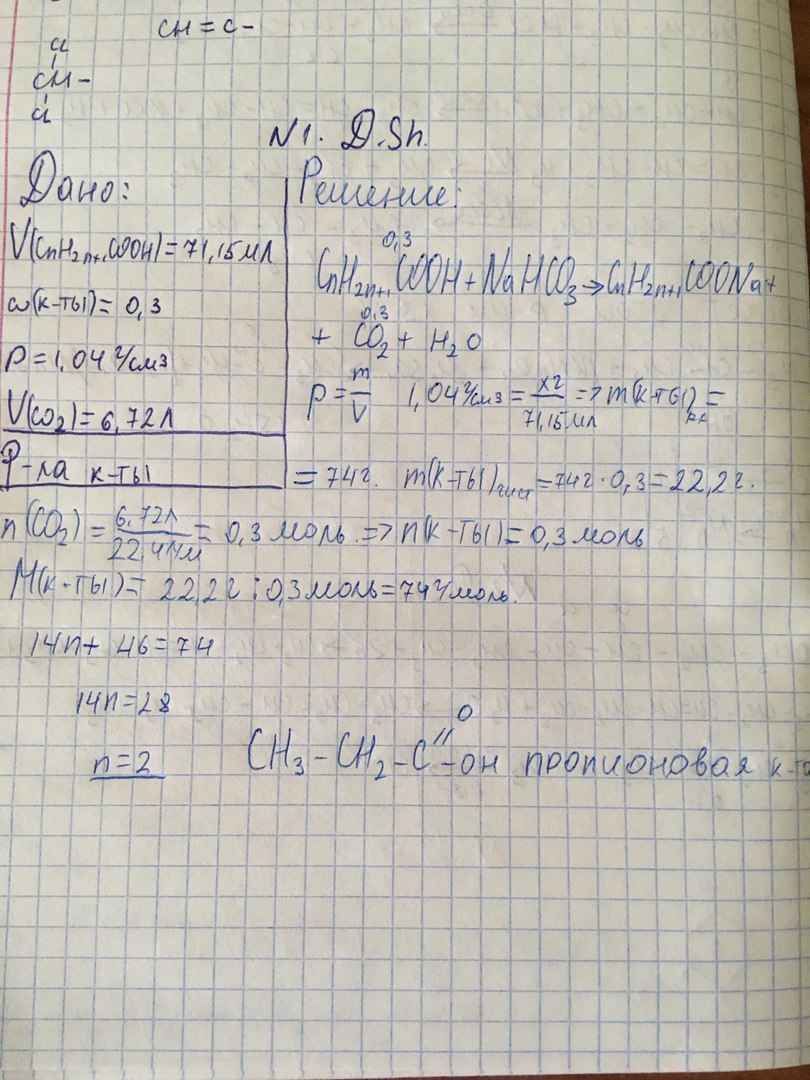 CH = C -
Cl
CH -
Cl
N 1. D.Sh.
Дано:
V(CnH2n+1COOH) = 71,15 мл
ω(к-ты) = 0,3
ρ = 1,04 г/см3
V(CO2) = 6,72 л
Ф-ла к-ты
Решение:
0,3
CnH2n+1COOH + NaHCO3 → CnH2n+1COONa +
0,3
+ CO2 + H2O
ρ = m/V 1,04 г/см3 = xг/71,15 мл => m(к-ты)р-р =
= 74 г. m(к-ты)чист = 74 г · 0,3 = 22,2 г.
n(CO2) = 6,72 л/22,4 л/м = 0,3 моль => n(к-ты) = 0,3 моль
M(к-ты) = 22,2 г : 0,3 моль = 74 г/моль.
14n + 46 = 74
14n = 28
n = 2
O
CH3 - CH2 - C - OH пропионовая к-та